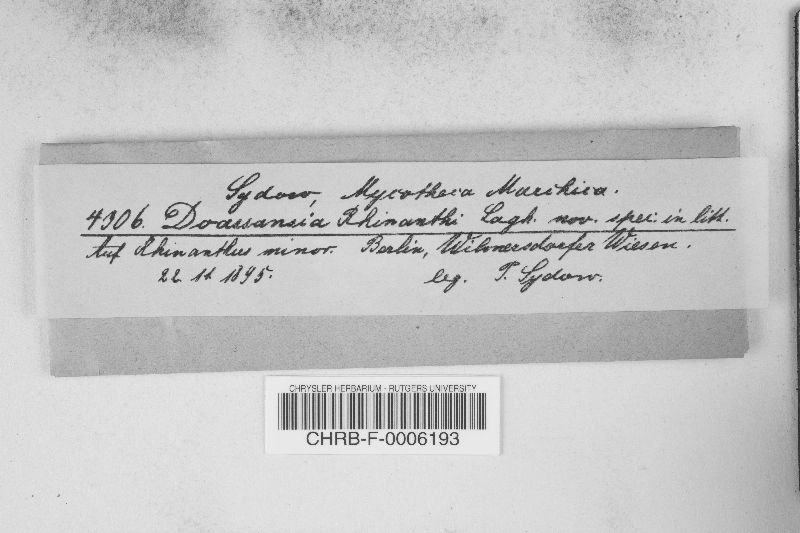 Sydow, Mycotheca Marchica.
4306. Doassansia Rhinanthi Lagh. nov. spec. in litt.
Auf Rhinanthus minor. Berlin, Wilmersdorfer Wiesen.
22. 1895.
leg. P. Sydow.
CHRYSLER HERBARIUM - RUTGERS UNIVERSITY
CHRB-F-0006193